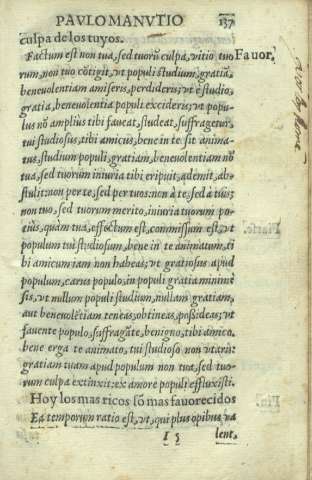 PAVLO MANVTIO 137
culpa de los tuyos.
Factum est non tua, sed tuorũ culpa, vitio, tuo Fauor,
rum, non tuo cõtigit, vt populi studium, gratiã,
beneuolentiam amiseris, perdideris; vt è studio,
gratia, beneuolentia populi excideris; vt popu-
lus nõ amplius tibi faueat, studeat, suffragetur,
tui studiosus, tibi amicus, bene in te sit anima-
tus, studium populi, gratiam, beneuolentiam nõ
tua, sed tuorum iniuria tibi eripuit, ademit, ab-
stulit: non per te, sed per tuos: non à te, sed à tuis;
non tuo, sed tuorum merito, iniuria tuorum po-
tiùs, quàm tua, effectum est, commissum est, vt
populum tui studiosum, bene in te animatum, ti
bi amicum iam non habeas; vt gratiosus apud
populum, carus populo, in populi gratia minimè
sis, vt nullum populi studium, nullam gratiam,
aut beneuolẽtiam teneas, obtineas, poßideas; vt
fauente populo, suffragãte, benigno, tibi amico,
bene erga te animato, tui studioso non vtaris:
gratiam tuam apud populum non tua, sed tuo-
rum culpa extinxit: ex amore populi effluxisti.
Hoy los mas ricos sõ mas fauorecidos
Ea temporum ratio est, vt, qui plus opibus va
I 5 lent,